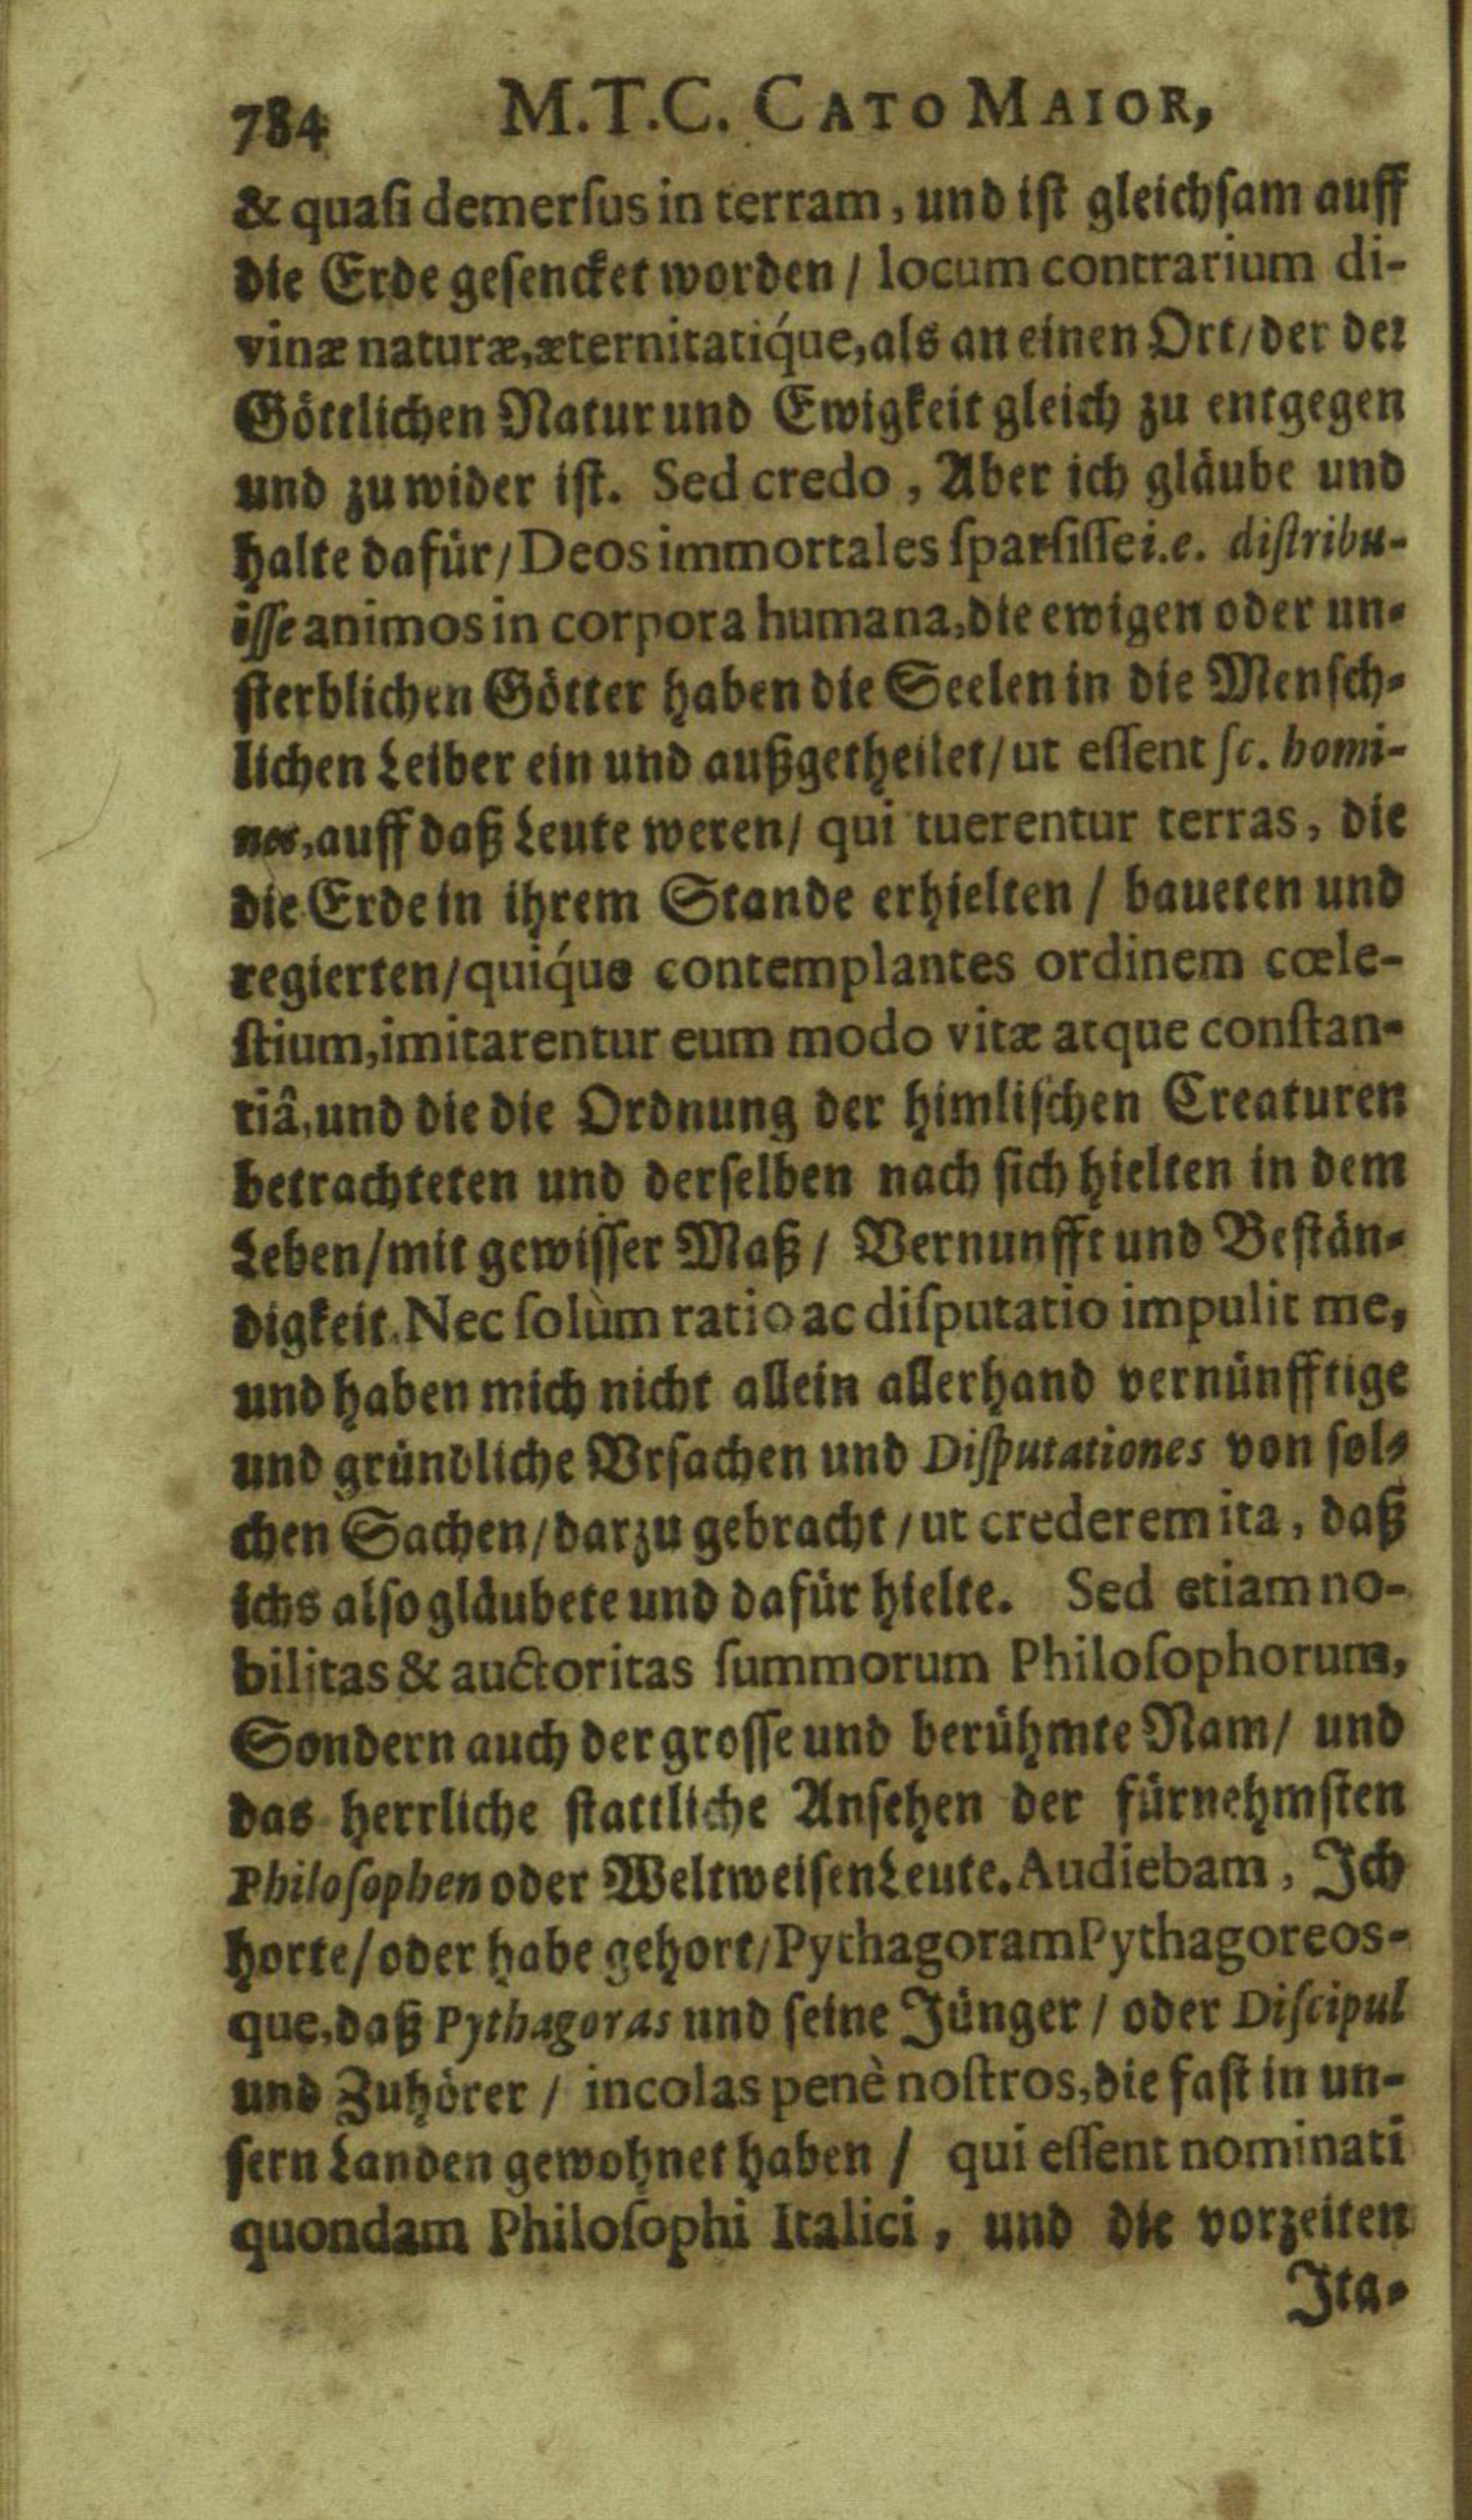 784 M.T.C. CATO MAIOR,
& quaſi demerſus in terram, und iſt gleichſam auff
die Erde geſencket worden / locum contrarium di-
vinæ naturæ, æternitatiq́ue, als an einen Ort / der der
Göttlichen Natur und Ewigkeit gleich zu entgegen
und zu wider iſt. Sed credo, Aber ich gläube und
halte dafür / Deos immortales ſparſiſſe i.e. diſtribu-
iſſe animos in corpora humana, die ewigen oder un-
ſterblichen Götter haben die Seelen in die Menſch-
lichen Leiber ein und außgetheilet / ut eſſent ſc. homi-
nes, auff daß Leute weren / qui tuerentur terras, die
die Erde in ihrem Stande erhielten / baueten und
regierten / quiq́ue contemplantes ordinem cœle-
ſtium, imitarentur eum modo vitæ atque conſtan-
tiâ, und die die Ordnung der himliſchen Creaturen
betrachteten und derſelben nach ſich hielten in dem
Leben / mit gewiſſer Maß / Vernunfft und Beſtän-
digkeit. Nec ſolùm ratio ac diſputatio impulit me,
und haben mich nicht allein allerhand vernünfftige
und gründliche Vrſachen und Diſputationes von ſol-
chen Sachen / darzu gebracht / ut crederem ita, daß
ichs alſo gläubete und dafür hielte. Sed etiam no-
bilitas & auctoritas ſummorum Philoſophorum,
Sondern auch der groſſe und berühmte Nam / und
das herrliche ſtattliche Anſehen der fürnehmſten
Philoſophen oder Weltweiſen Leute. Audiebam, Ich
horte / oder habe gehort / Pythagoram Pythagoreos-
que, daß Pythagoras und ſeine Jünger / oder Diſcipul
und Zuhörer / incolas penè noſtros, die faſt in un-
ſern Landen gewohnet haben / qui eſſent nominati
quondam Philoſophi Italici, und die vorzeiten
Ita-